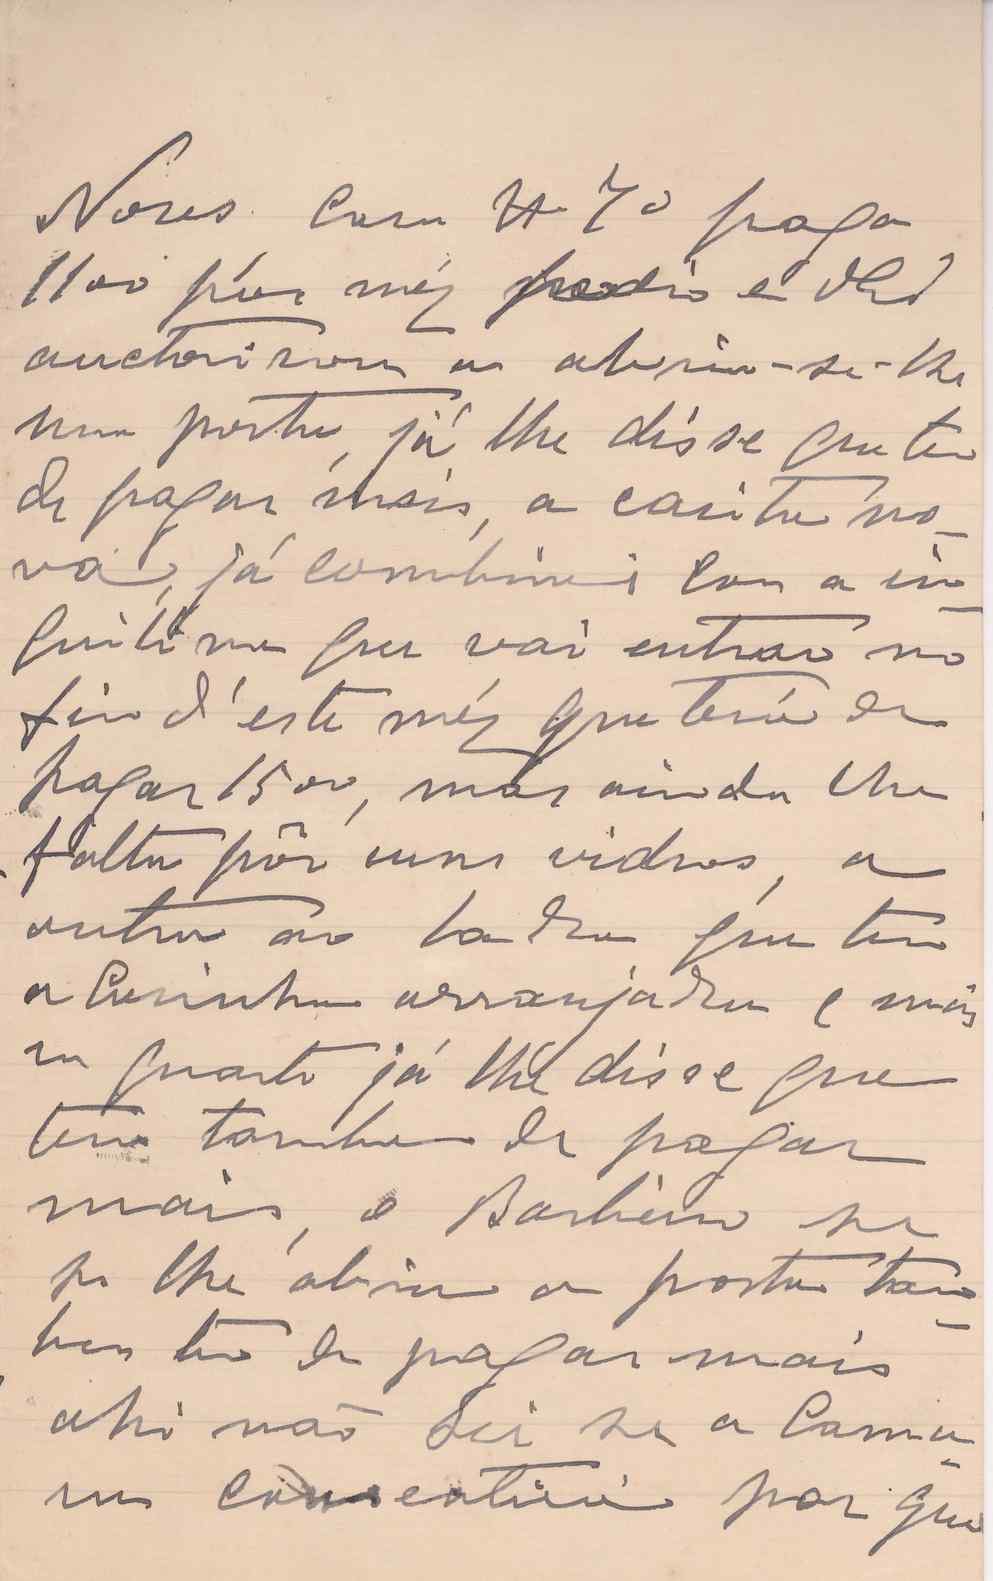 Nores casa Nº 70 paga
1100 por méz pedio e V. Ex.ª
auctorisou a abrir-se-lhe
uma porta, já lhe disse que tem
de pagar mais, a casita no-
va, já combinei com a in-
quilina que vai entrar no
fim d'este méz que terá de
pagar 1500, mas ainda lhe
falta pôr uns vidros, a
outra ao lado que tem
a Cosinha arranjada e mais
um quarto já lhe disse que
tem tambem de pagar
mais, o Barbeiro se
se lhe abrir a porta tam-
bem tem de pagar mais
ahi não sei se a Cama-
ra consentirá por que